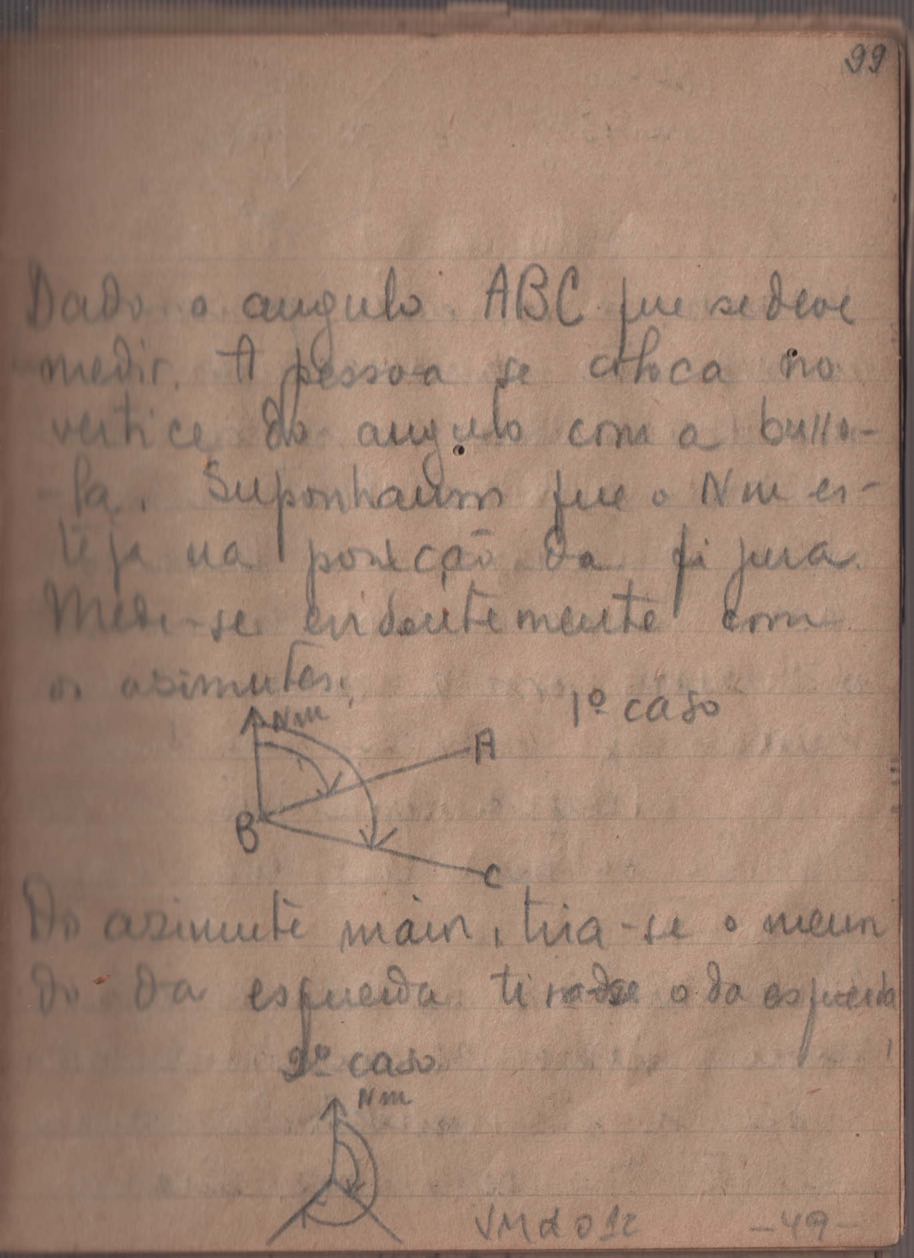 99
Dado o angulo ABC que se deve
medir. A pessoa se colloca no
vertice do angulo com a busso-
-la. Suponhamos que o Nm es-
teja na posição da figura.
Mede-se evidentemente com
os asimutes.
1º caso
Nm
A
B
C
Do asimute maior, tira-se o menor
do da esquerda tira-se o da esquerda
2º caso
Nm
VMd012
-49-